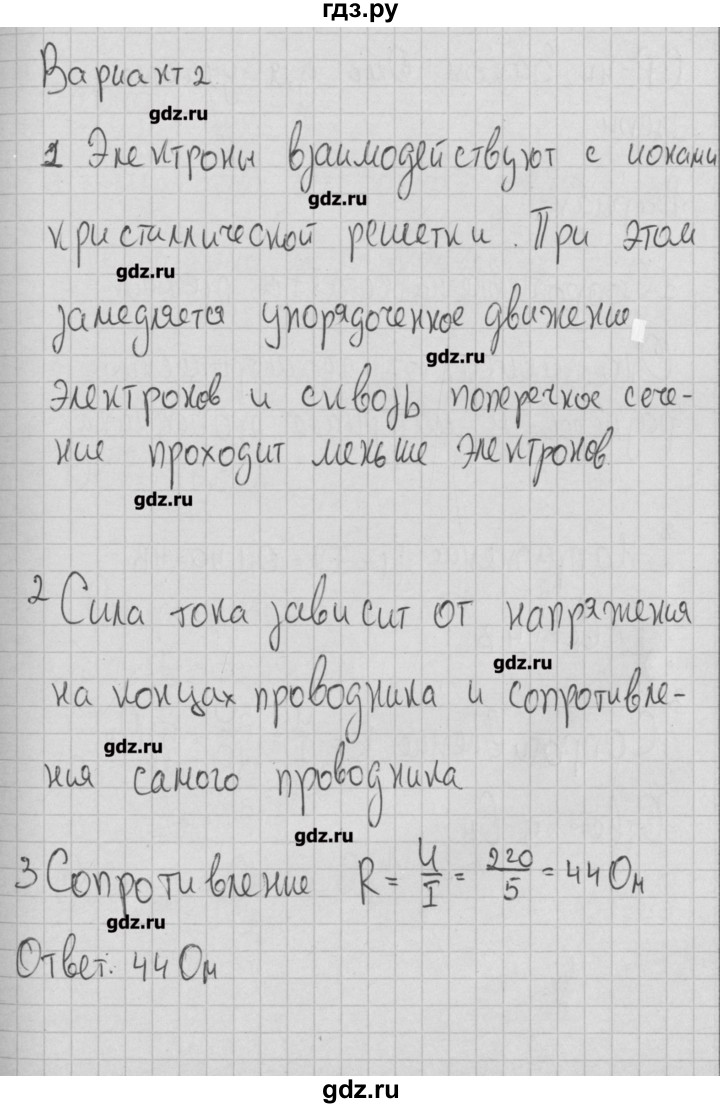 гдз.ру
Вариант 2
gdz.ru
1 Электроны взаимодействуют с ионами
gdz.ru
кристаллической решетки. При этом
gdz.ru
замедляется упорядоченное движение
gdz.ru
электронов и сквозь поперечное сече-
ние проходит меньше электронов
gdz.ru
2 Сила тока зависит от напряжения
gdz.ru
на концах проводника и сопротивле-
gdz.ru
ния самого проводника
gdz.ru
3 Сопротивление R = U/I = 220/5 = 44 Ом
gdz.ru
Ответ: 44 Ом
gdz.ru